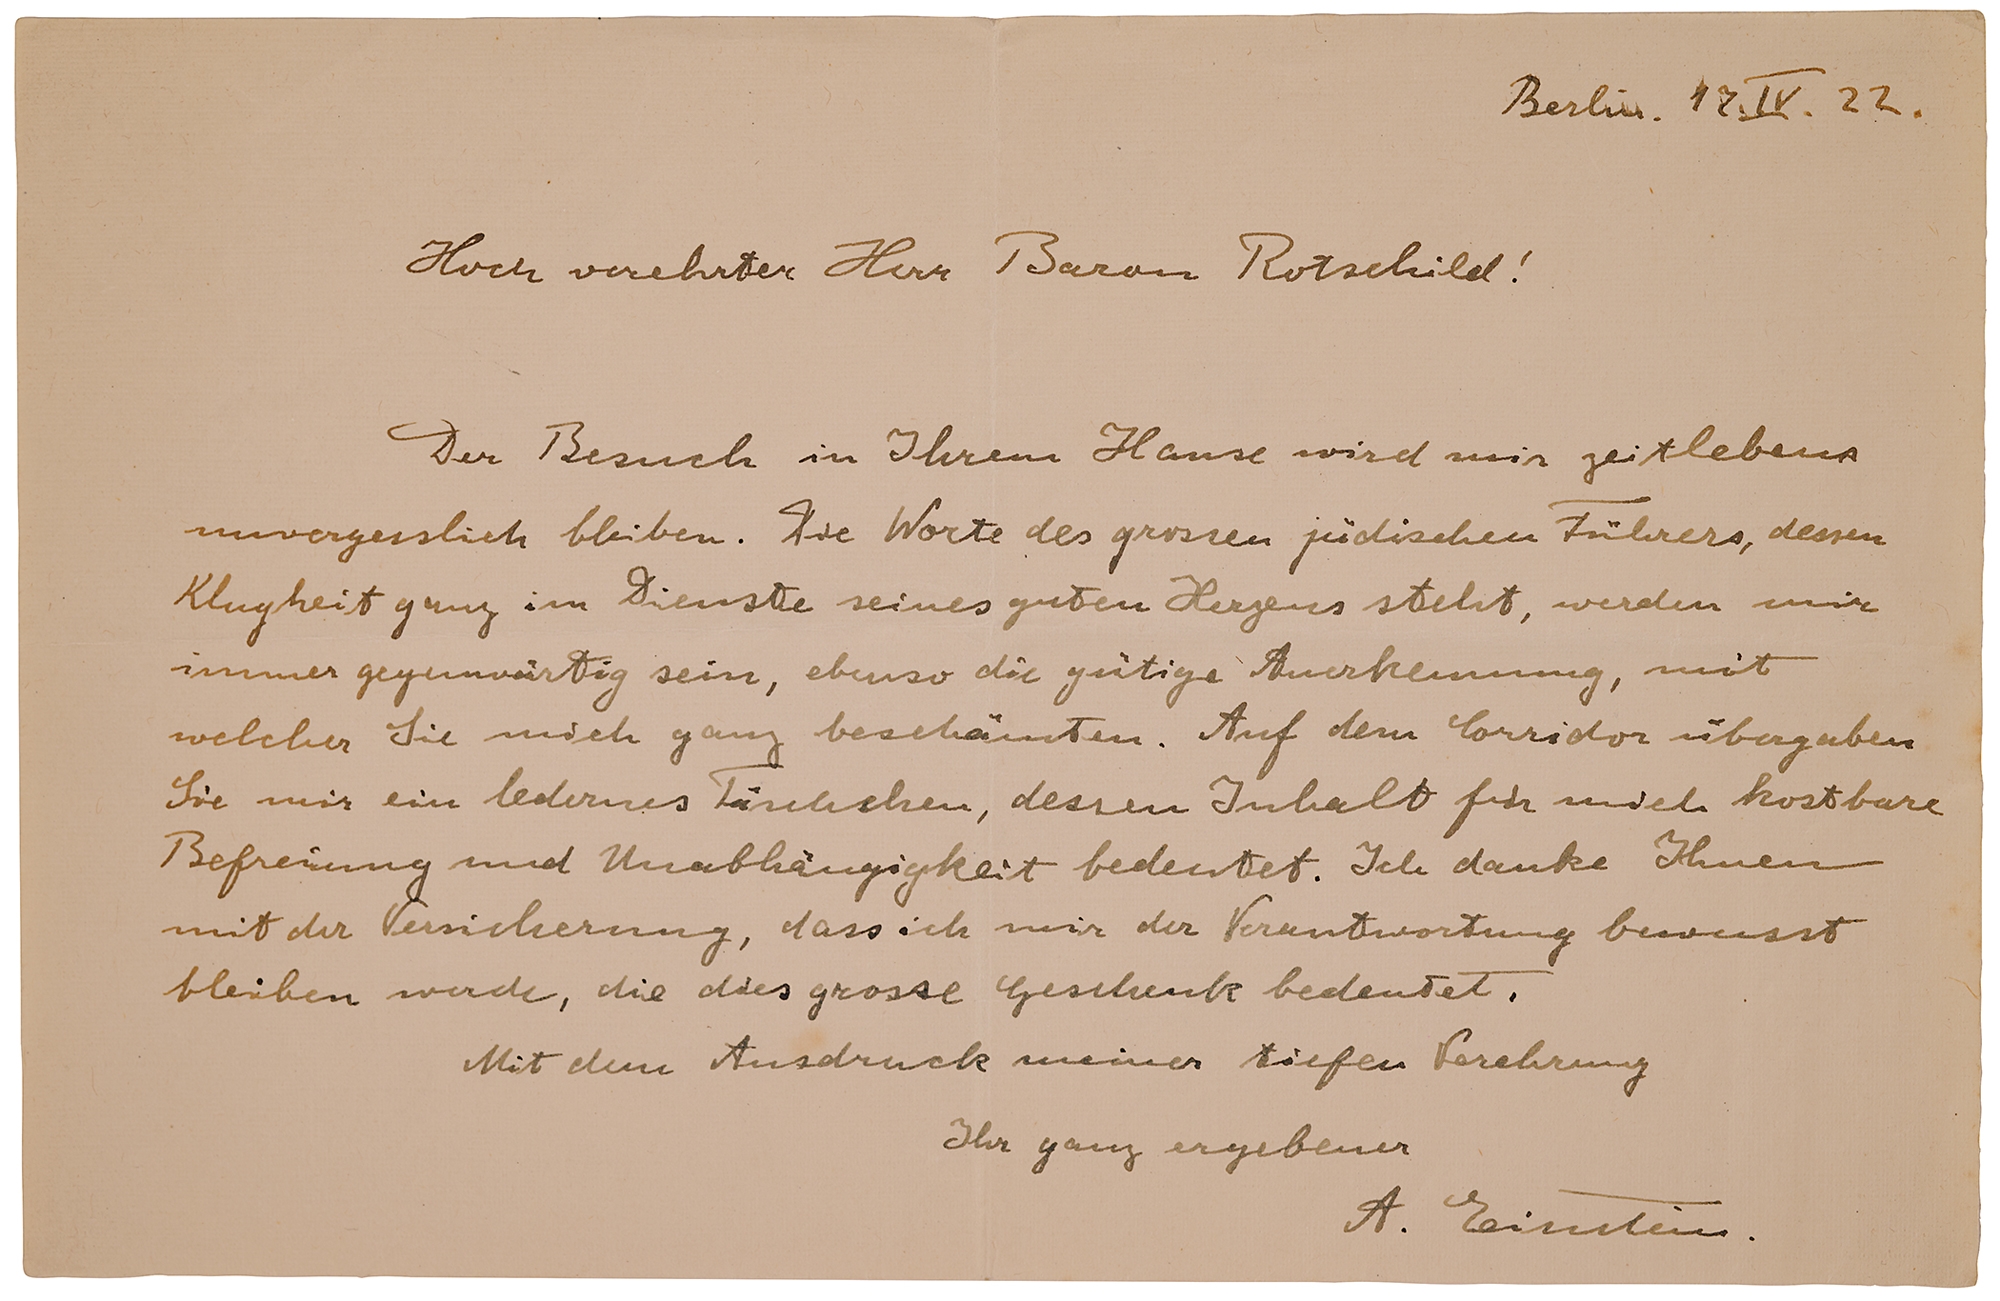 Berlin. 17. IV. 22.
Hoch verehrter Herr Baron Rotschild!
Der Besuch in Ihrem Hause wird mir zeitlebens
unvergesslich bleiben. Die Worte des grossen jüdischen Führers, dessen
Klugheit ganz im Dienste seines guten Herzens steht, werden mir
immer gegenwärtig sein, ebenso die gütige Anerkennung, mit
welcher Sie mich ganz beschämten. Auf dem Corridor übergaben
Sie mir ein ledernes Täschchen, dessen Inhalt für mich kostbare
Befreiung und Unabhängigkeit bedeutet. Ich danke Ihnen
mit der Versicherung, dass ich mir der Verantwortung bewusst
bleiben werde, die dies grosse Geschenk bedeutet.
Mit dem Ausdruck meiner tiefen Verehrung
Ihr ganz ergebener
A. Einstein.